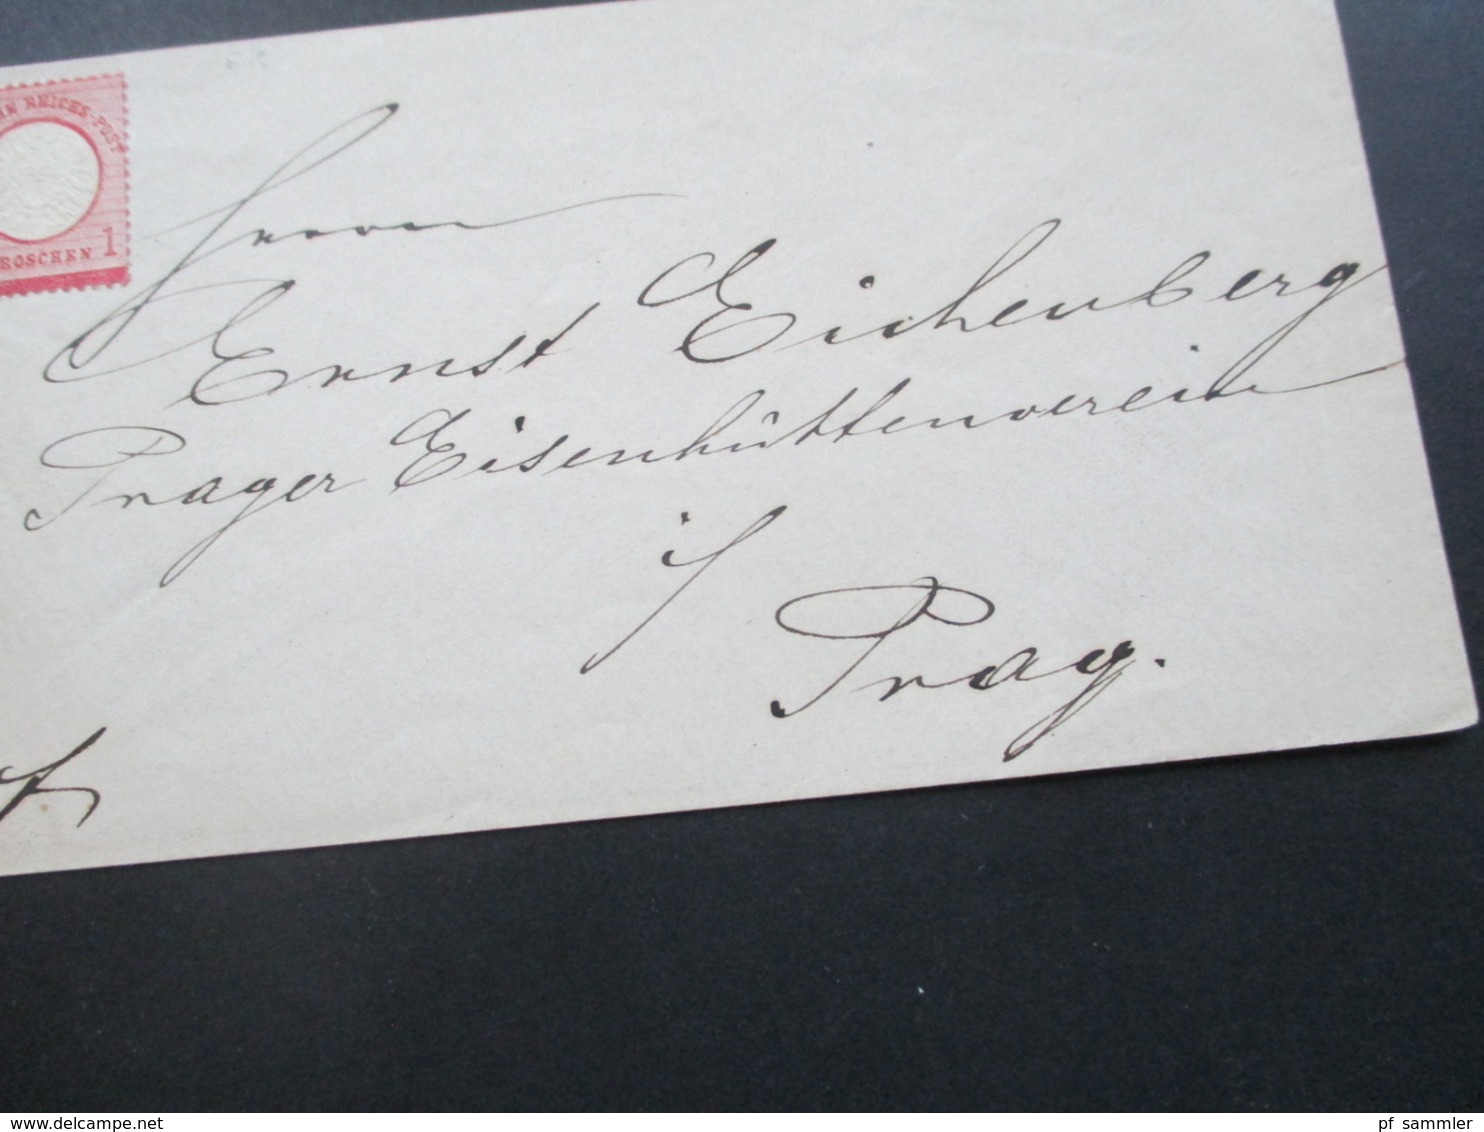 HE REICHS-POST
ROSCHEN 1
Herrn
Ernst Eichenberg
Prager Eisenhüttenverein
i/
Prag.
www.delcampe.net
pf_sammler